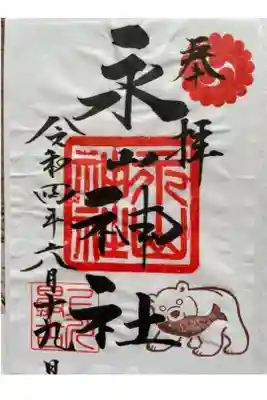 奉拝
永山神社
令和四年六月十九日
永山神社